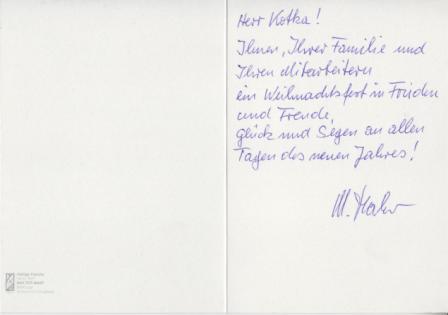 Herr Kotka!
Ihnen, Ihrer Familie und
Ihren Mitarbeitern
ein Weihnachtsfest in Frieden
und Freude,
Glück und Segen an allen
Tagen des neuen Jahres!
M.